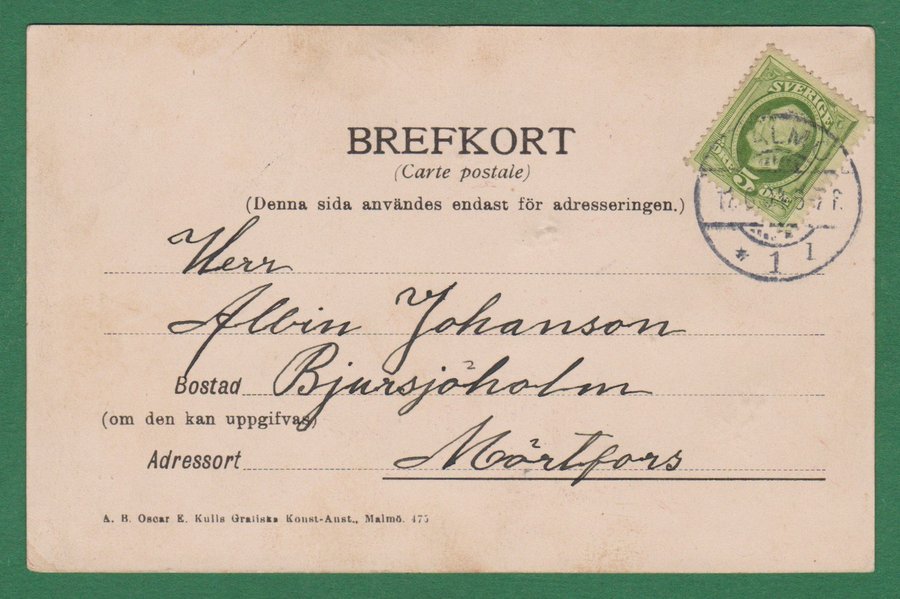 BREFKORT
(Carte postale)
(Denna sida användes endast för adresseringen.)
SVERIGE
5
Herr
Albin Johanson
Bostad Bjursjöholm
(om den kan uppgifvas)
Adressort Mörtfors
* 1 1
A. B. Oscar E. Kulls Grafiska Konst-Anst., Malmö. 475